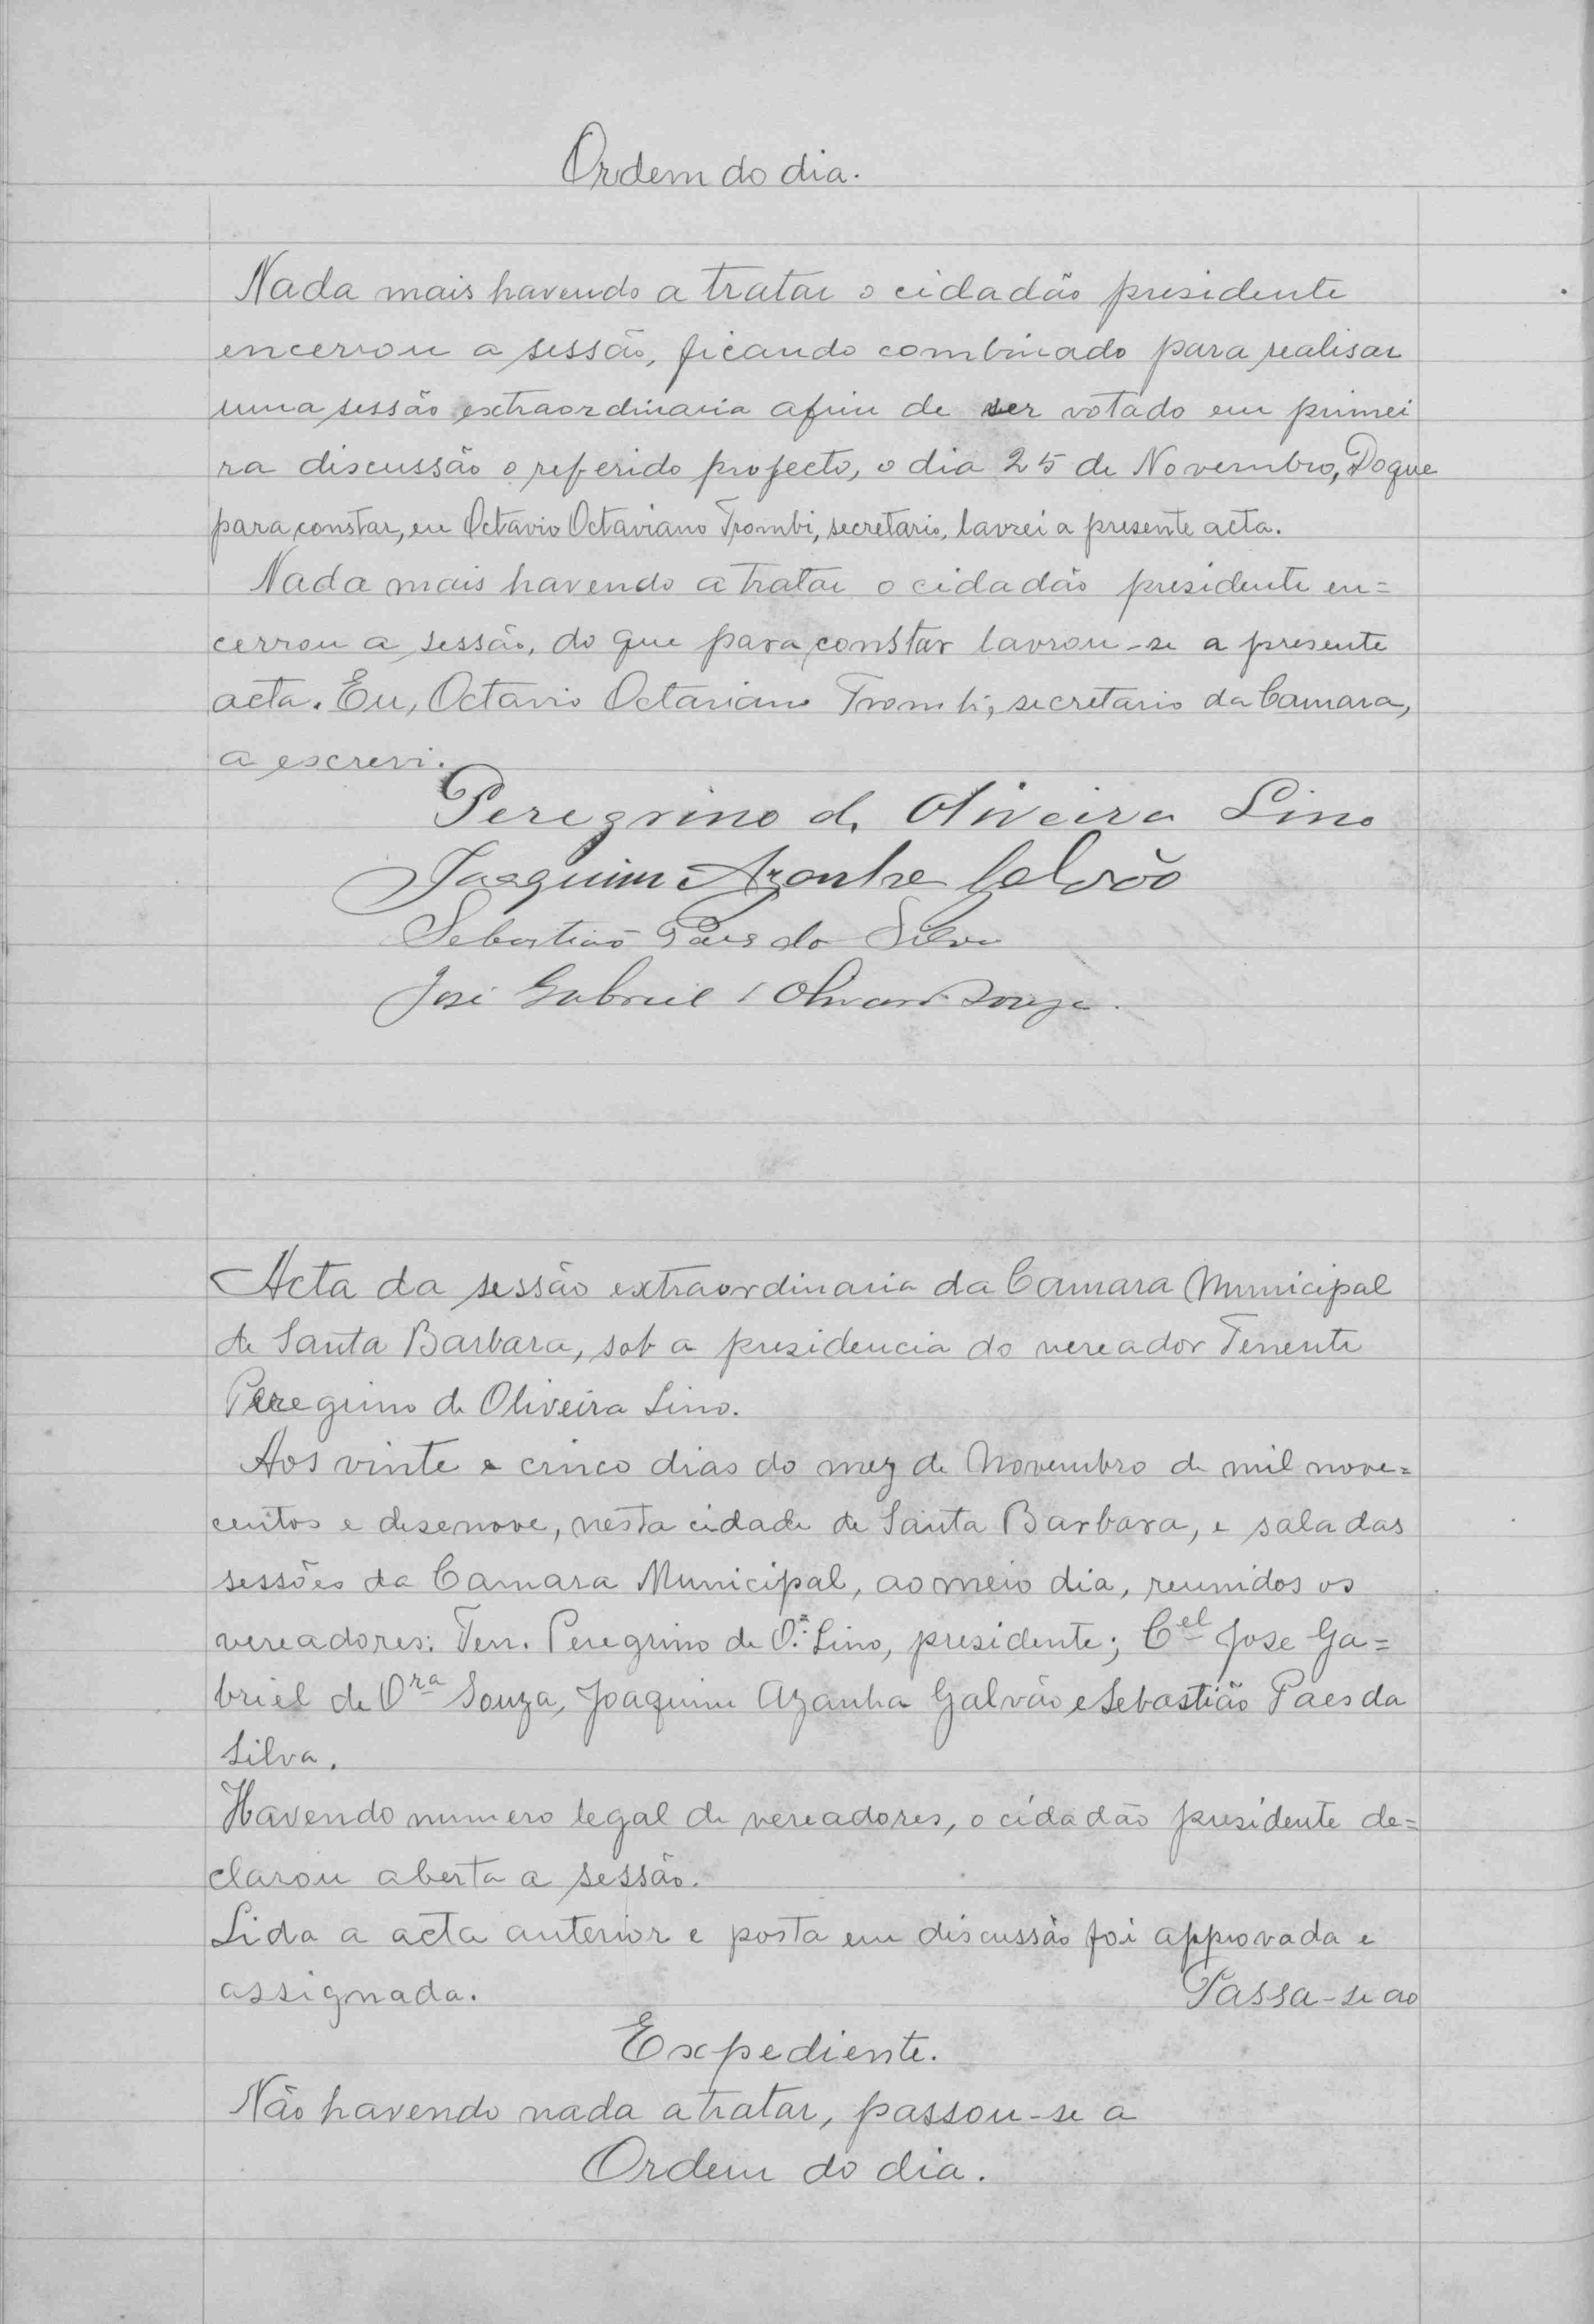 Ordem do dia.
Nada mais havendo a tratar o cidadão presidente
encerrou a sessão, ficando combinado para realisar
uma sessão extraordinaria afim de ser votado em primei
ra discussão o referido projecto, o dia 25 de Novembro, Do que
para constar, eu Octavio Octaviano Trombi, secretario, lavrei a presente acta.
Nada mais havendo a tratar o cidadão presidente en=
cerrou a sessão, do que para constar lavrou-se a presente
acta. Eu, Octavio Octaviano Trombi, secretario da Camara,
a escrevi.
Peregrino d. Oliveira Lino
Joaquim Azanha Galvão
Sebastião Paes da Silva
José Gabriel d Oliveira Souza.
Acta da sessão extraordinaria da Camara Municipal
de Santa Barbara, sob a presidencia do vereador Tenente
Peregrino de Oliveira Lino.
Aos vinte e cinco dias do mez de Novembro de mil nove=
centos e desenove, nesta cidade de Santa Barbara, e sala das
sessões da Camara Municipal, ao meio dia, reunidos os
vereadores: Ten. Peregrino de O.ª Lino, presidente; Cel Jose Ga=
briel de Ora Souza, Joaquim Azanha Galvão e Sebastião Paes da
Silva.
Havendo numero legal de vereadores, o cidadão presidente de=
clarou aberta a sessão.
Lida a acta anterior e posta em discussão foi approvada e
assignada. Passa-se ao
Expediente.
Não havendo nada a tratar, passou-se a
Ordem do dia.